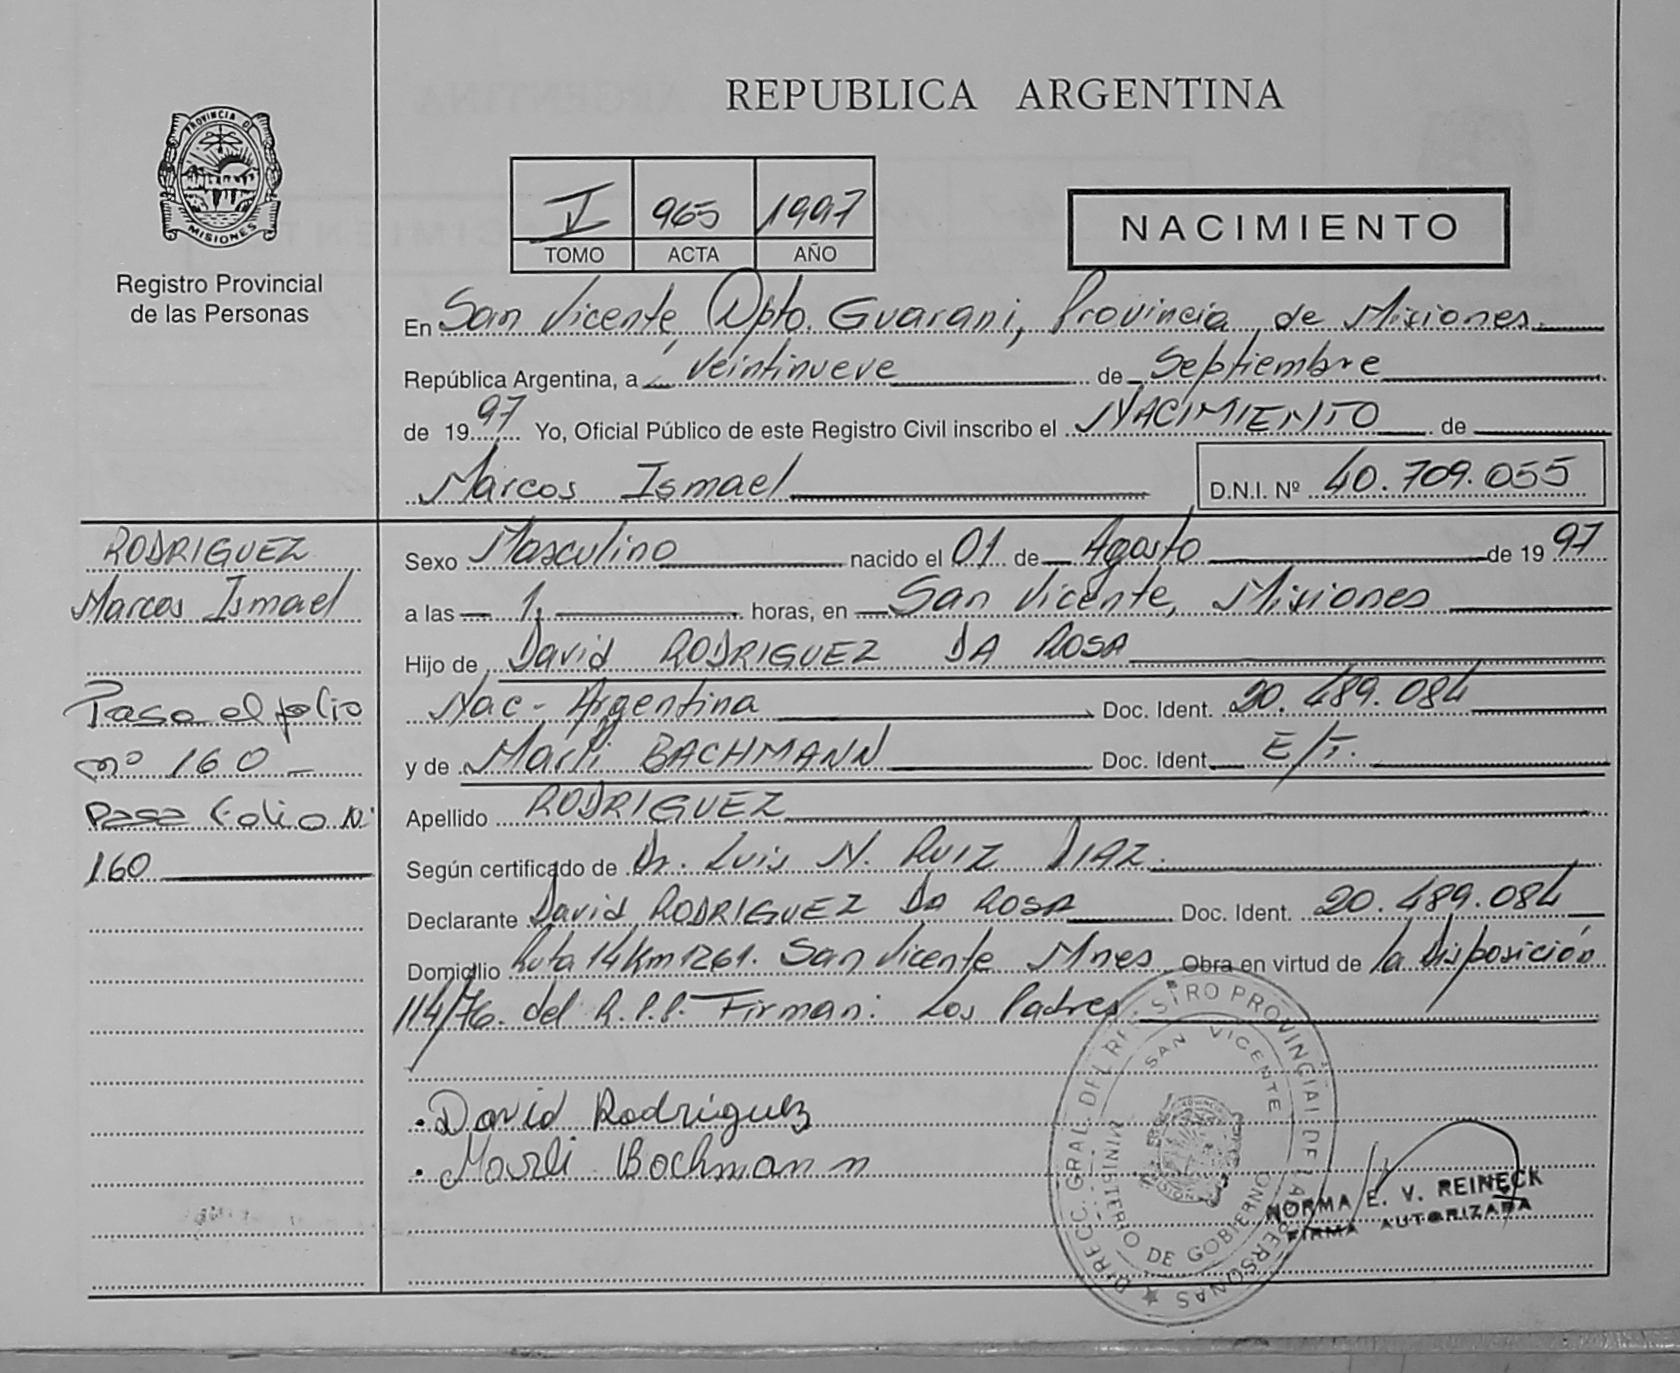 REPUBLICA ARGENTINA
PROVINCIA DE
MISIONES
Registro Provincial
de las Personas
V 965 1997
TOMO ACTA AÑO
NACIMIENTO
En San Vicente, Dpto. Guarani, Provincia de Misiones.
República Argentina, a veintinueve de Septiembre
de 1997 Yo, Oficial Público de este Registro Civil inscribo el NACIMIENTO de
Marcos Ismael D.N.I. Nº 40.709.055
RODRIGUEZ
Marcos Ismael
Pasa al folio
nº 160
Pasa Folio Nº
160
Sexo Masculino nacido el 01 de Agosto de 1997
a las 1, horas, en San Vicente, Misiones
Hijo de David RODRIGUEZ DA ROSA
Nac- Argentina Doc. Ident. 20.489.084
y de Marli BACHMANN Doc. Ident. E/T.
Apellido RODRIGUEZ
Según certificado de Dr. Luis N. RUIZ DIAZ.
Declarante David RODRIGUEZ DA ROSA Doc. Ident. 20.489.084
Domicilio Ruta 14 Km 1261. San Vicente Mnes Obra en virtud de la disposición
114/76. del R.P.P. Firman: Los Padres
. David Rodriguez
. Marli Bachmann
DIRECC. GRAL. DEL REGISTRO PROVINCIAL DE LAS PERSONAS
SAN VICENTE
MINISTERIO DE GOBIERNO
NORMA E. V. REINECK
FIRMA AUTORIZADA